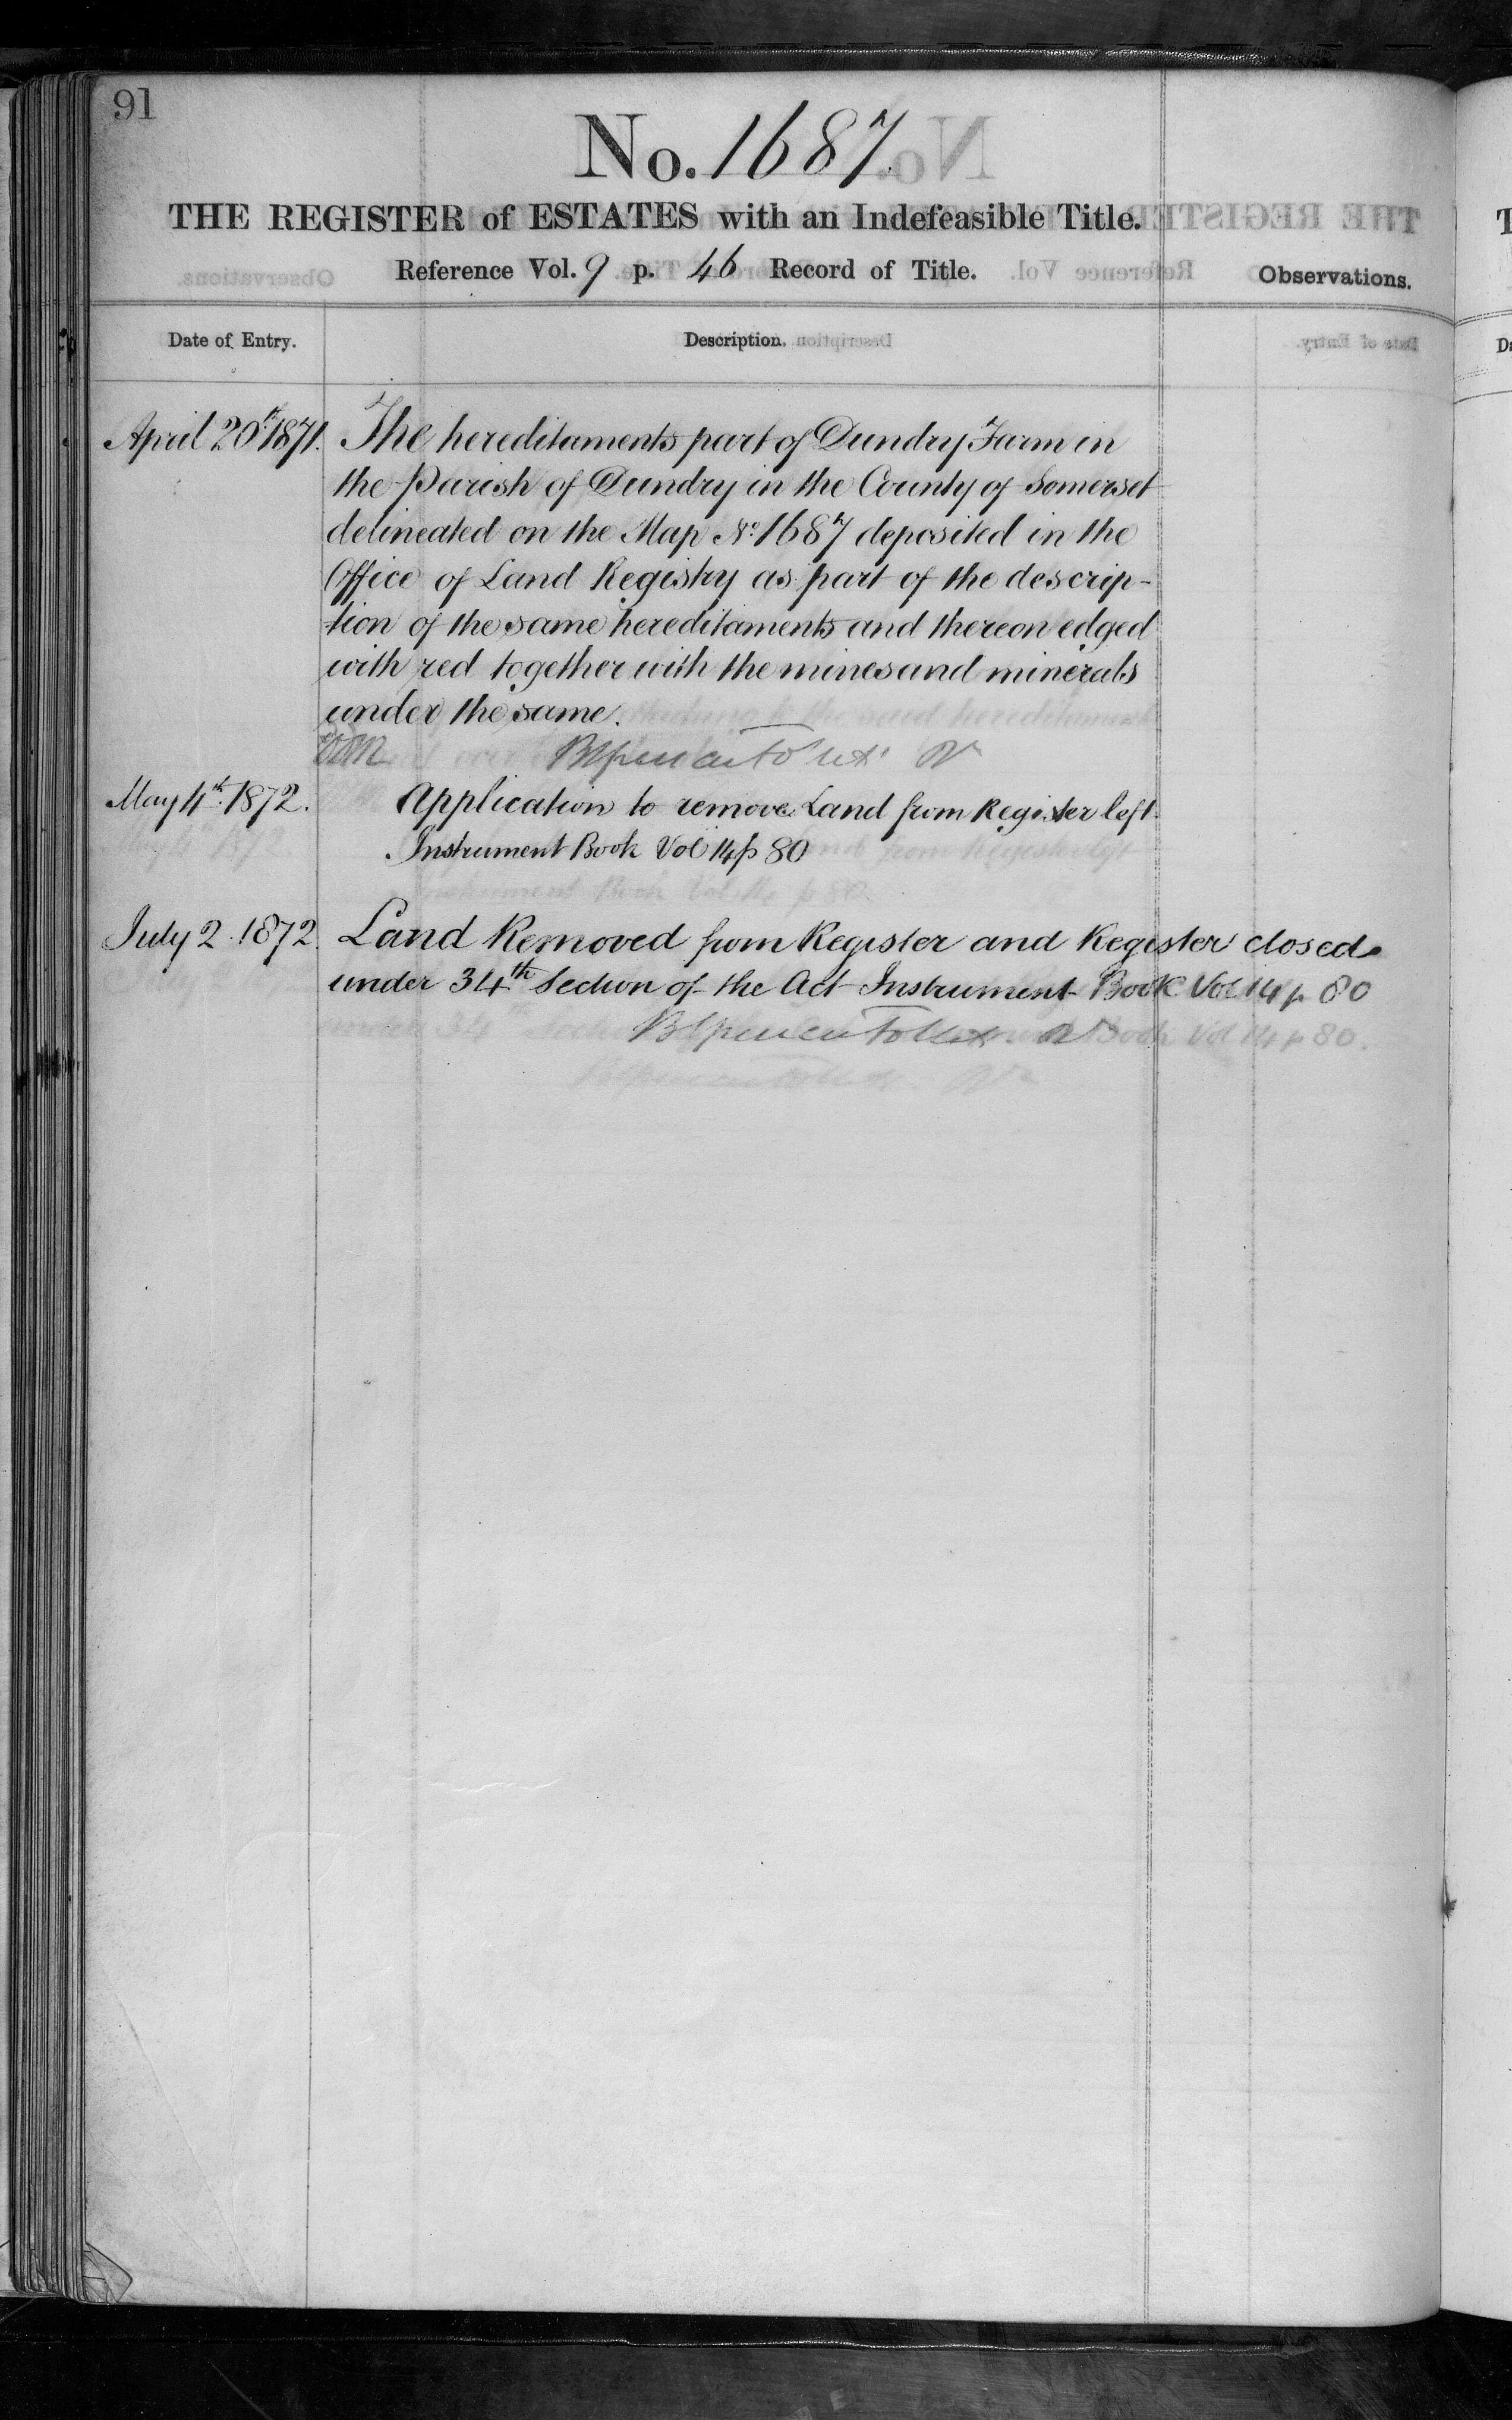 91
No. 1687
THE REGISTER of ESTATES with an Indefeasible Title.
Reference Vol. 9 p. 46 Record of Title.
Observations.
Date of Entry.
Description.
April 20th 1871.
The hereditaments part of Dundry Farm in
the Parish of Dundry in the County of Somerset
delineated on the Map No. 1687 deposited in the
Office of Land Registry as part of the descrip-
tion of the same hereditaments and thereon edged
with red together with the mines and minerals
under the same.
May 4th. 1872.
Application to remove Land from Register left
Instrument Book Vol 14 p 80
July 2. 1872.
Land Removed from Register and Register closed
under 34th Section of the Act Instrument Book Vol 14 p 80